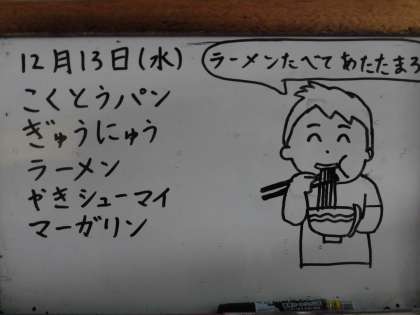 12月13日(水)
こくとうパン
ぎゅうにゅう
ラーメン
やきシューマイ
マーガリン
ラーメンたべて あたたまろ